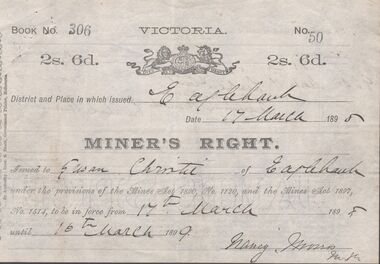 BOOK No. 306 VICTORIA. No. 50
2s. 6d. 2s. 6d.
District and Place in which issued Eaglehawk
Date 17 March 1898
MINER'S RIGHT.
Issued to Christie of Eaglehawk
under the provisions of the Mines Act 1890, No. 1120, and the Mines Act 1897,
No. 1514, to be in force from 17th March 1898
until 16th March 1899.